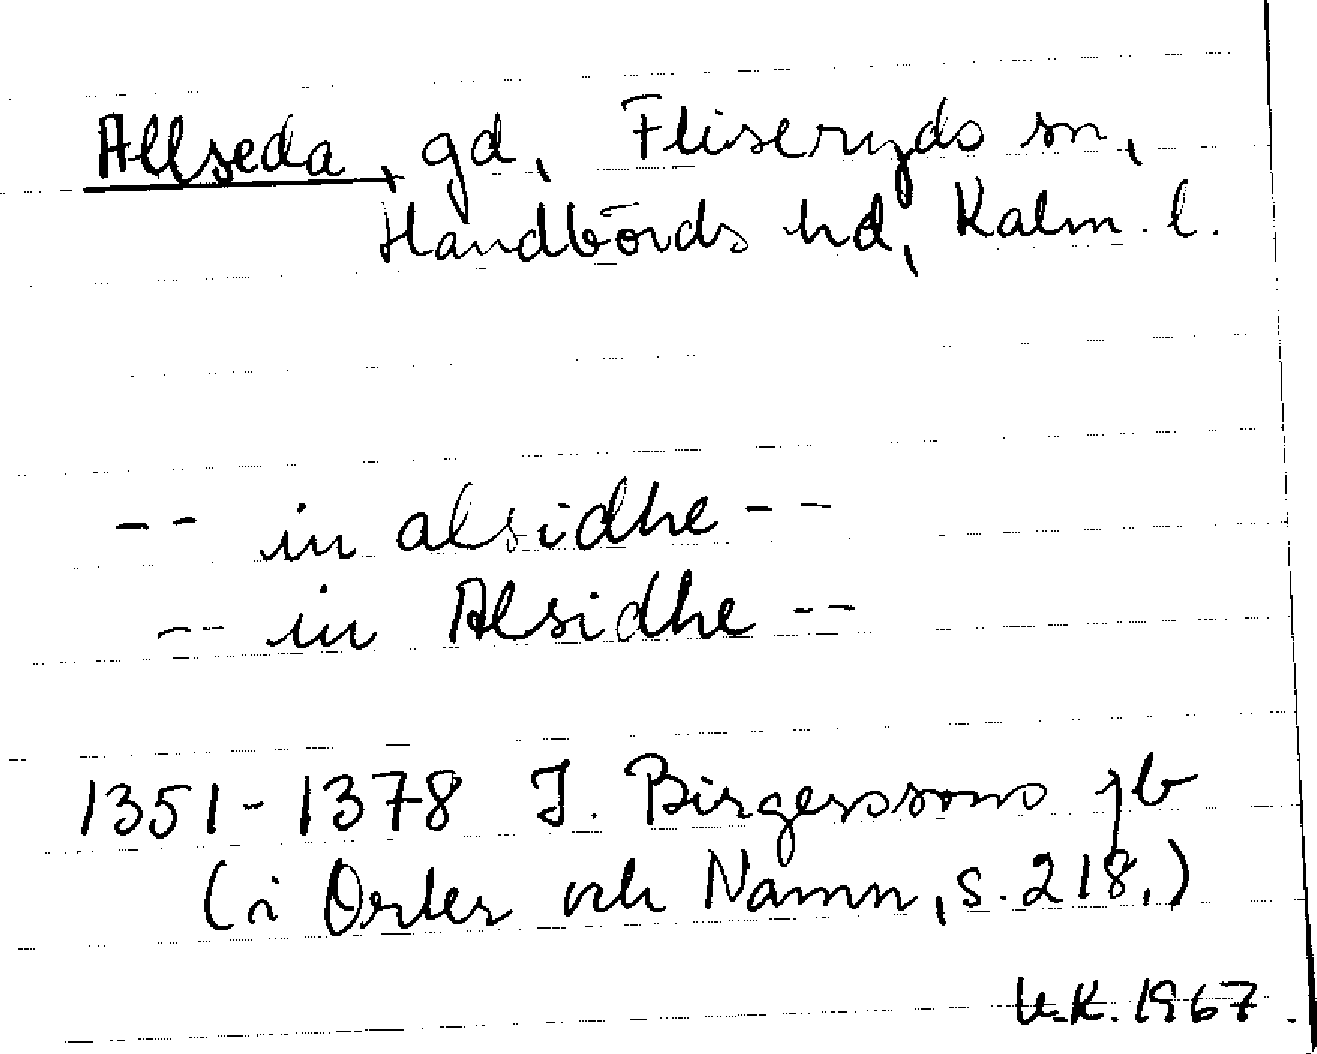 Allseda, gd, Fliseryds sn,
Handbörds hd, Kalm. l.
-- in alsidhe --
-- in Alsidhe --
1351-1378 J. Birgerssons jb
(i Orter och Namn, s. 218.)
U.K. 1967.